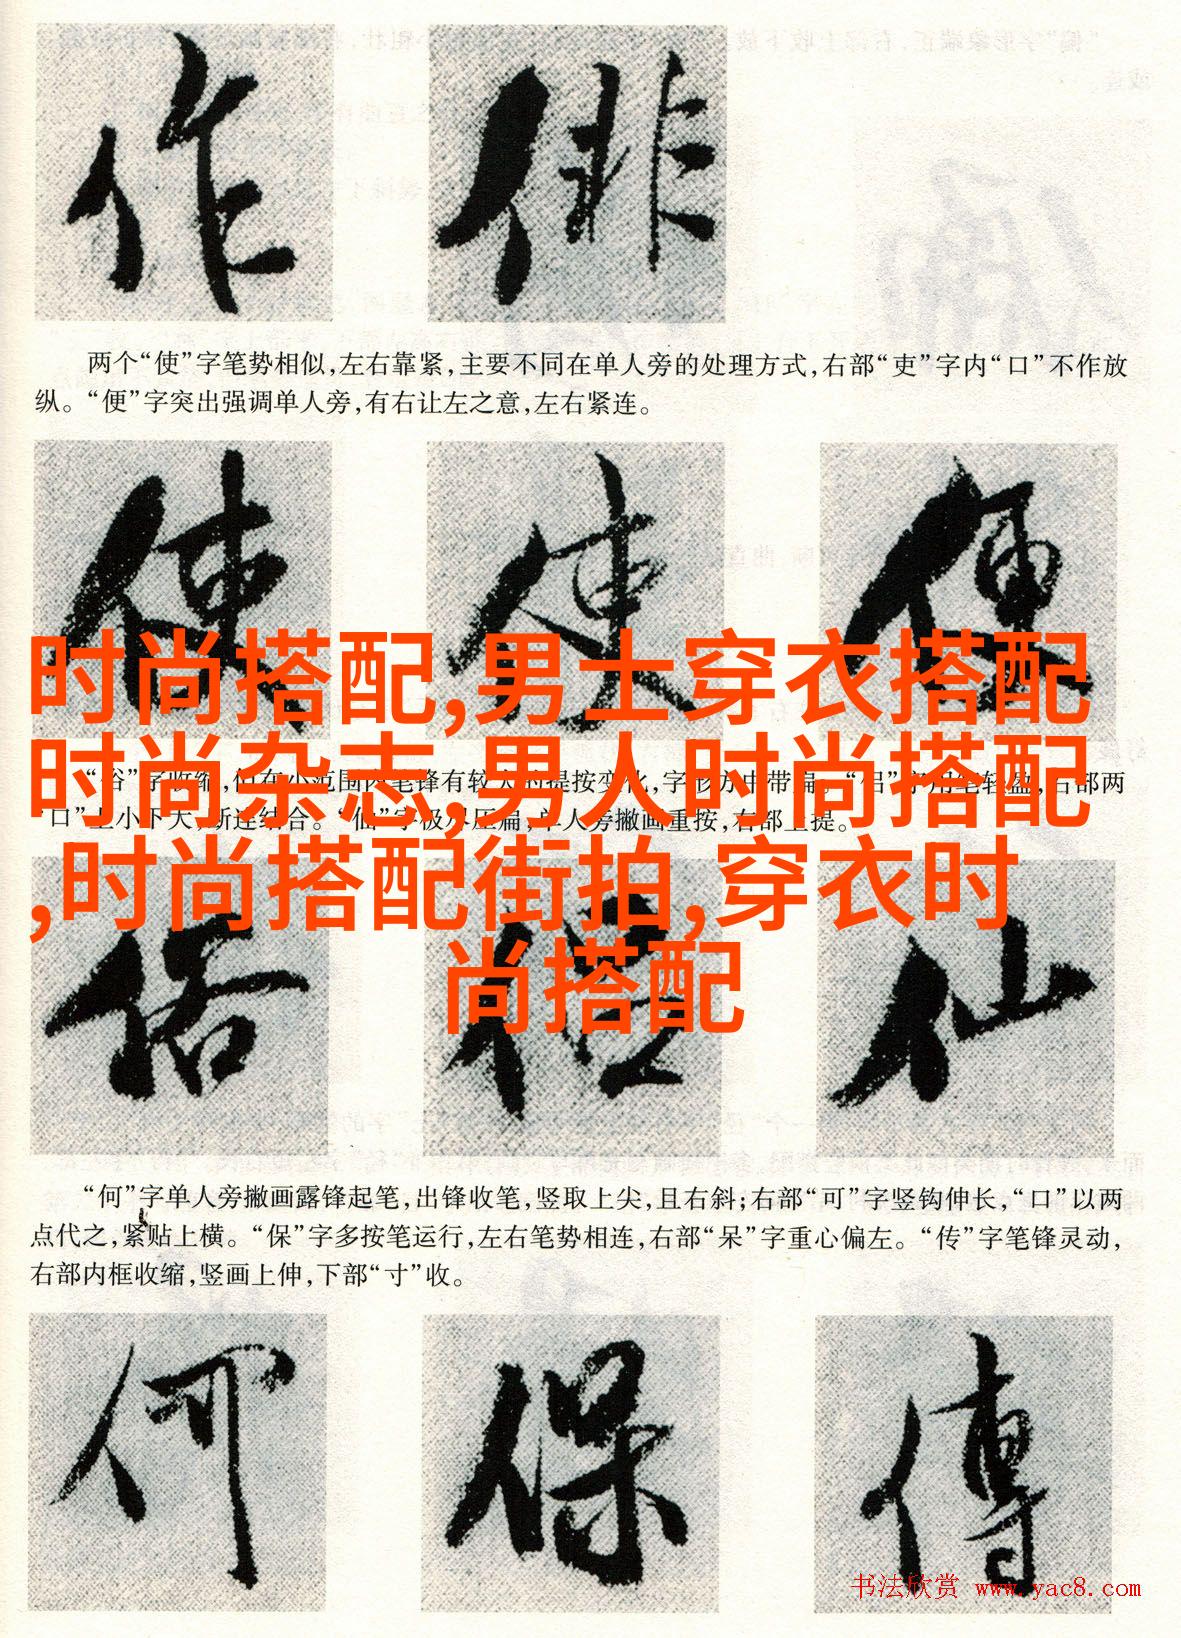 作 俳
两个“使”字笔势相似,左右靠紧,主要不同在单人旁的处理方式,右部“吏”字内“口”不作放
纵。“便”字突出强调单人旁,有右让左之意,左右紧连。
使 使 便
时尚搭配,男士穿衣搭配
时尚杂志,男人时尚搭配
,时尚搭配街拍,穿衣时
尚搭配
“俗”字收缩,但在小范围内笔锋有较大的提按变化,字形方中带扁。“侣”字用笔轻盈,右部两
“口”上小下大,断连结合。“仙”字极尽压扁,单人旁撇画重按,右部上提。
俗 仙
“何”字单人旁撇画露锋起笔,出锋收笔,竖取上尖,且右斜;右部“可”字竖钩伸长,“口”以两
点代之,紧贴上横。“保”字多按笔运行,左右笔势相连,右部“呆”字重心偏左。“传”字笔锋灵动,
右部内框收缩,竖画上伸,下部“寸”收。
何 保 傳
书法欣赏 www.yac8.com